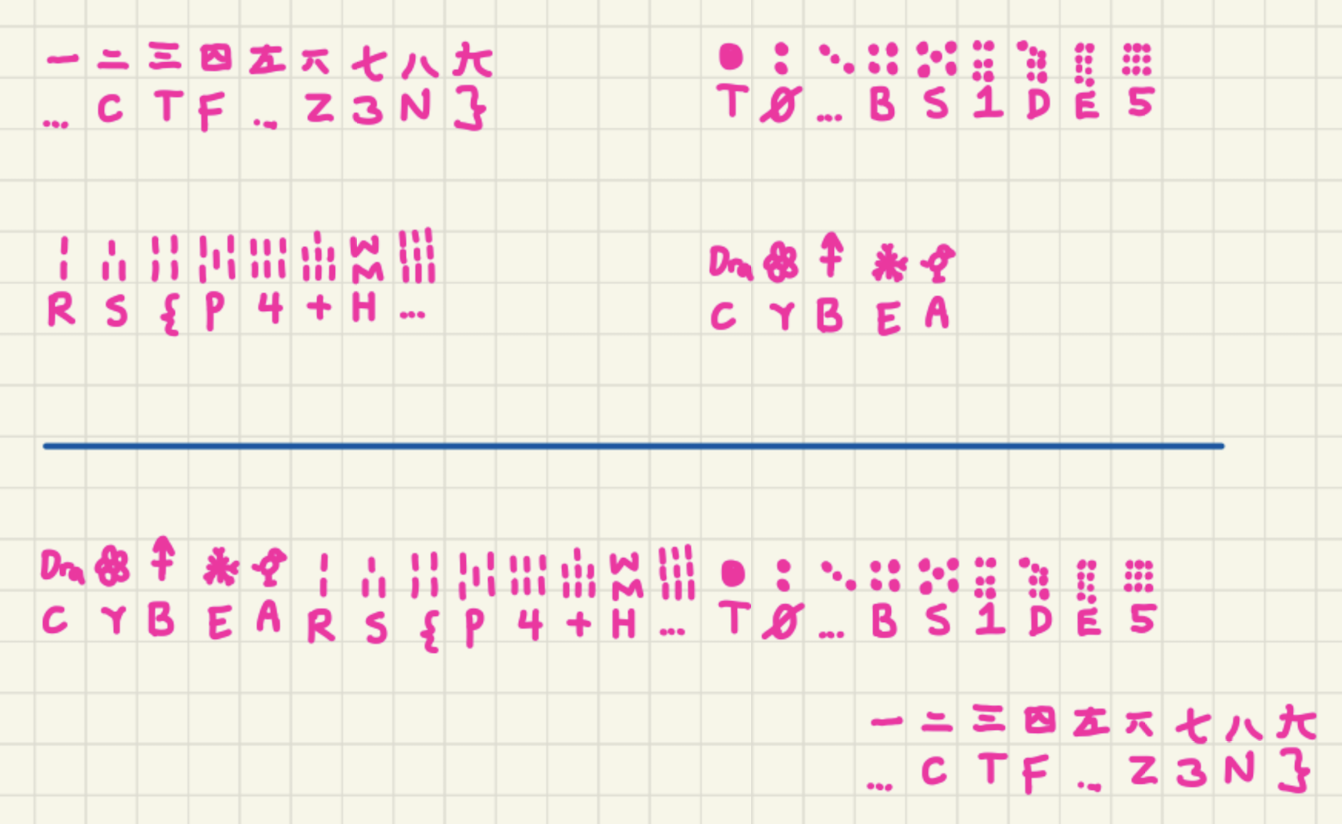 一 二 三 四 五 六 七 八 九
... C T F ... Z 3 N }
T Ø ... B S 1 D E 5
R S { P 4 + H ...
C Y B E A
C Y B E A R S { P 4 + H ... T Ø ... B S 1 D E 5
一 二 三 四 五 六 七 八 九
... C T F ... Z 3 N }